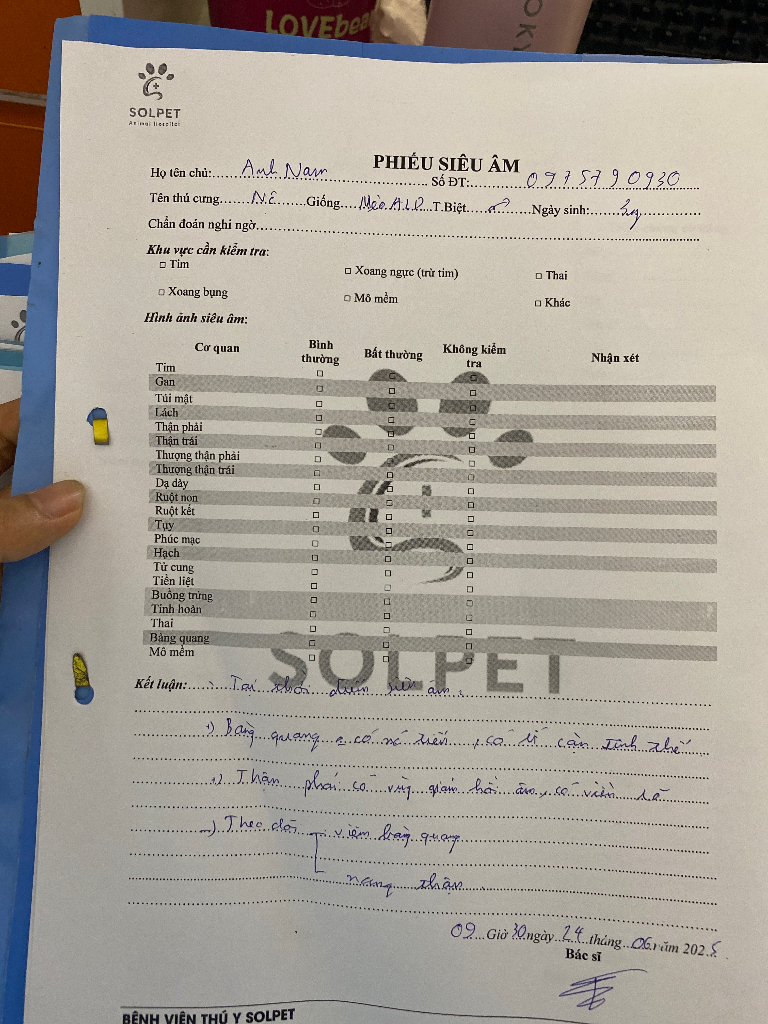 LOVEbea
OKY
SOLPET
Animal Hospital
PHIẾU SIÊU ÂM
Họ tên chủ: Anh Nam Số ĐT: 0975790930
Tên thú cưng N.E Giống Mèo A.L.D T.Biệt ♂ Ngày sinh: 2y
Chẩn đoán nghi ngờ
Khu vực cần kiểm tra:
□ Tim □ Xoang ngực (trừ tim) □ Thai
□ Xoang bụng □ Mô mềm □ Khác
Hình ảnh siêu âm:
Cơ quan Bình thường Bất thường Không kiểm tra Nhận xét
Tim □ □ □
Gan □ □ □
Túi mật □ □ □
Lách □ □ □
Thận phải □ □ □
Thận trái □ □ □
Thượng thận phải □ □ □
Thượng thận trái □ □ □
Dạ dày □ □ □
Ruột non □ □ □
Ruột kết □ □ □
Tụy □ □ □
Phúc mạc □ □ □
Hạch □ □ □
Tử cung □ □ □
Tiền liệt □ □ □
Buồng trứng □ □ □
Tinh hoàn □ □ □
Thai □ □ □
Bàng quang □ □ □
Mô mềm □ □ □
SOLPET
Kết luận: Tại thời điểm siêu âm:
Bàng quang có nước tiểu, có ít cặn
Thận phải có vùng giảm hồi âm, có viền rõ
Theo dõi viêm bàng quang
nang thận
09 Giờ 30 ngày 24 tháng 06 năm 2025
Bác sĩ
BỆNH VIỆN THÚ Y SOLPET